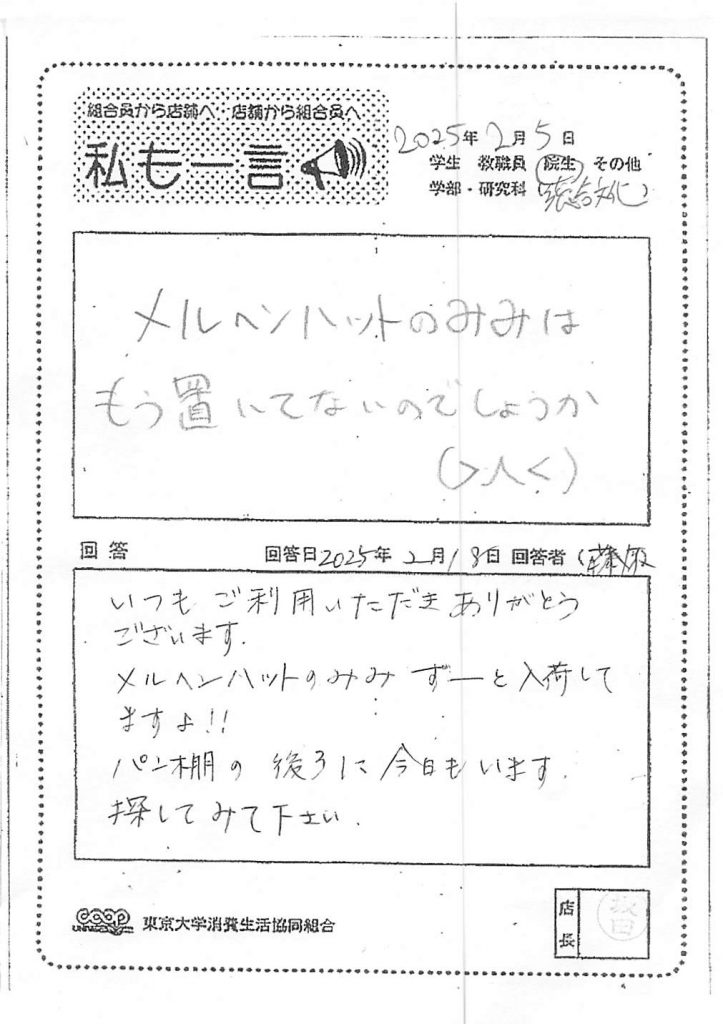 組合員から店舗へ…店舗から組合員へ
私も一言
2025年2月5日
学生 教職員 院生 その他
学部・研究科(総合文化)
メルヘンハットのみみは
もう置いてないのでしょうか
(>人<)
回答
回答日2025年 2月18日 回答者
いつもご利用いただきありがとう
ございます.
メルヘンハットのみみ ずーと入荷して
ますよ!!
パン棚の後ろに今日もいます.
探してみて下さい.
coop
東京大学消費生活協同組合
店長